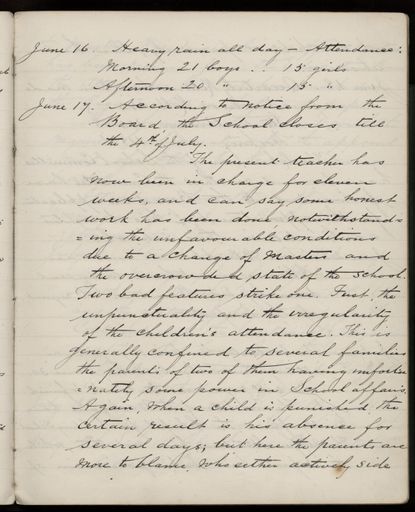 June 16. Heavy rain all day — Attendance:
Morning 21 boys .. 15 girls
Afternoon 20 " 15 "
June 17. According to notice from the
Board, the School closes till
the 4th of July.
The present teacher has
now been in charge for eleven
weeks, and can say some honest
work has been done notwithstand=
=ing the unfavourable conditions
due to a change of Masters and
the overcrowded state of the School.
Two bad features strike one. First the
unpunctuality and the irregularity
of the children's attendance. This is
generally confined to several families
the parents of two of them having unfortu
=nately some power in School affairs.
Again, when a child is punished the
certain result is his absence for
several days; but here the parents are
more to blame. Who either actively side